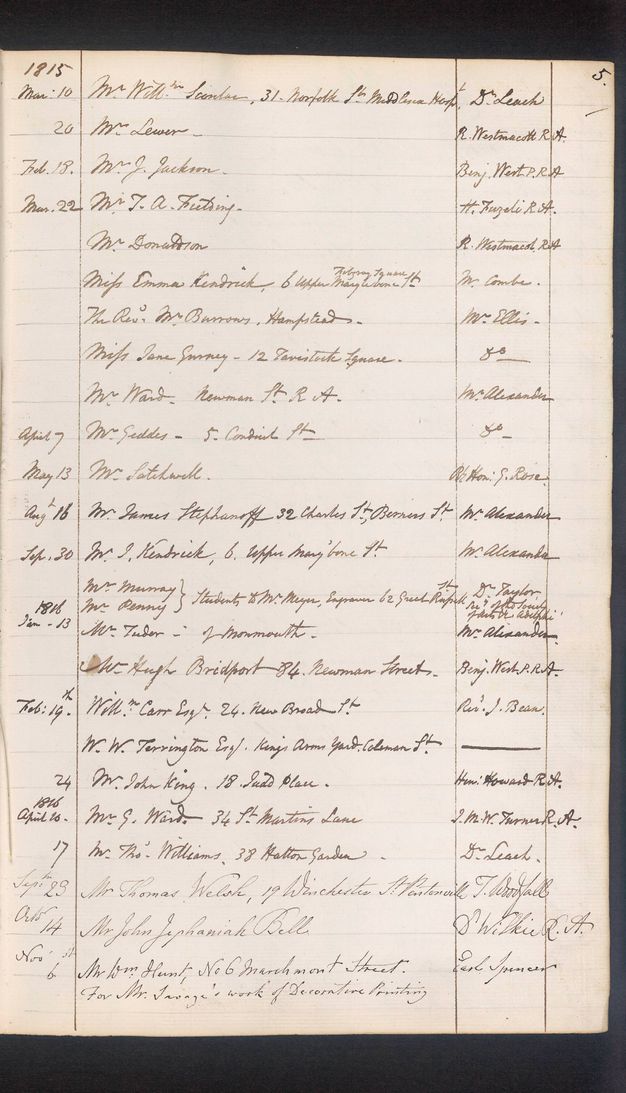 1815
5.
Mar: 10 Mr. Willm. 31. Norfolk St. Middlesex Hospt. Dr. Leach
20 Mr. Lewer - R. Westmacott R.A.
Feb. 18. Mr. J. Jackson. Benj. West. P.R.A
Mar. 22 Mr. T. A. Fielding. H. Fuzeli R.A.
Mr. Donaldson R. Westmacot, R.A
Fitzroy Square
Miss Emma Kendrick, 6 Upper Marylebone St. Mr. Combe.
The Revd. Mr. Burrows, Hampstead. Mr. Ellis -
Miss Jane Gurney - 12 Tavistock Square. Do
Mr. Ward. Newman St. R.A. Mr. Alexander
April 7 Mr. Geddes - 5. Conduit St. Do
May 13 Mr. Satchwell. Rt. Hon: G. Rose.
Augt 16 Mr. James Stephanoff 32 Charles St. Berners St. Mr. Alexander
Sep. 30 Mr. J. Kendrick, 6. Upper Mary'bone St. Mr. Alexander
Mr. Murray } Students to Mr. Meyer, Engraver 62 Greek St. Dr. Taylor
Mr. Penny Secy. of the Society of Arts &c Adelphi
1816
Jan - 13 Mr. Tudor - of Monmouth. Mr. Alexander
Mr. Hugh Bridport 84. Newman Street. Benj. West. P.R.A.
Feb: 19th. Willm. Carr Esqr. 24. New Broad St. Revd. J. Bean.
W. W. Terrington Esq. Kings Arms Yard. Coleman St.
24 Mr. John King. 18. Judd Place. Hen: Howard R.A.
1816
April 10. Mr. G. Ward. 34 St. Martins Lane J. M. W. Turner R.A.
17 Mr. Thos. Williams. 38 Hatton Garden. Dr. Leach.
Sept 23 Mr Thomas Welsh, 19 Winchester St. Pentonville T. Woodfall
Octr 14 Mr John Jephaniah Bell D Wilkie R.A.
Novr 6 Mr Wm. Hunt, No 6 Marchmont Street. Earl Spencer
For Mr. Savage's work of Decorative Printing